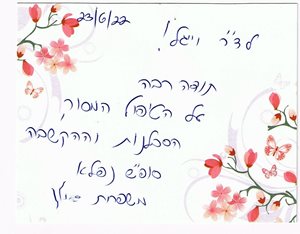 23/6/22
לד"ר ויגלר!
תודה רבה
על הטיפול המסור,
הסבלנות וההקשבה
סופ"ש נפלא
משפחת